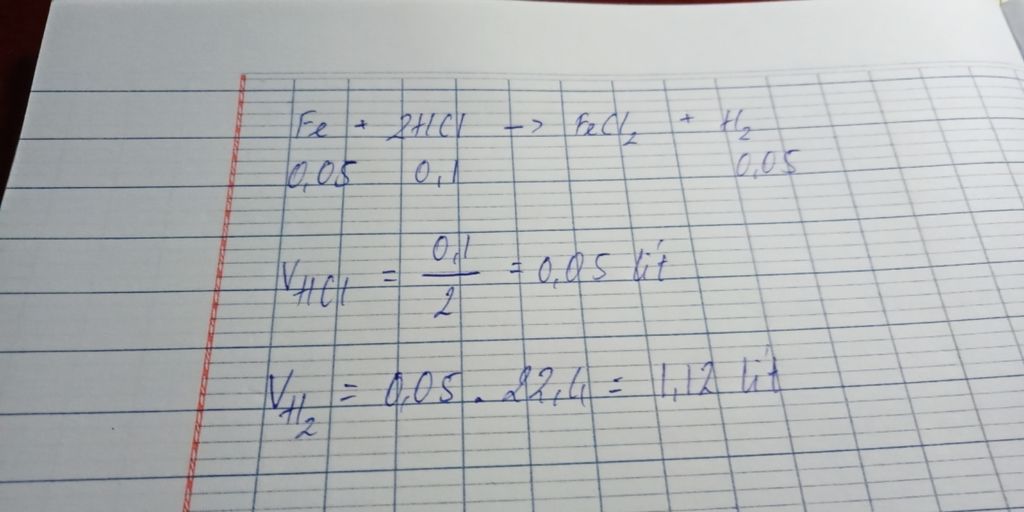 Fe + 2HCl -> FeCl₂ + H₂
0,05 0,1 0,05
V_HCl = 0,1/2 = 0,05 lít
V_H₂ = 0,05 . 22,4 = 1,12 lít